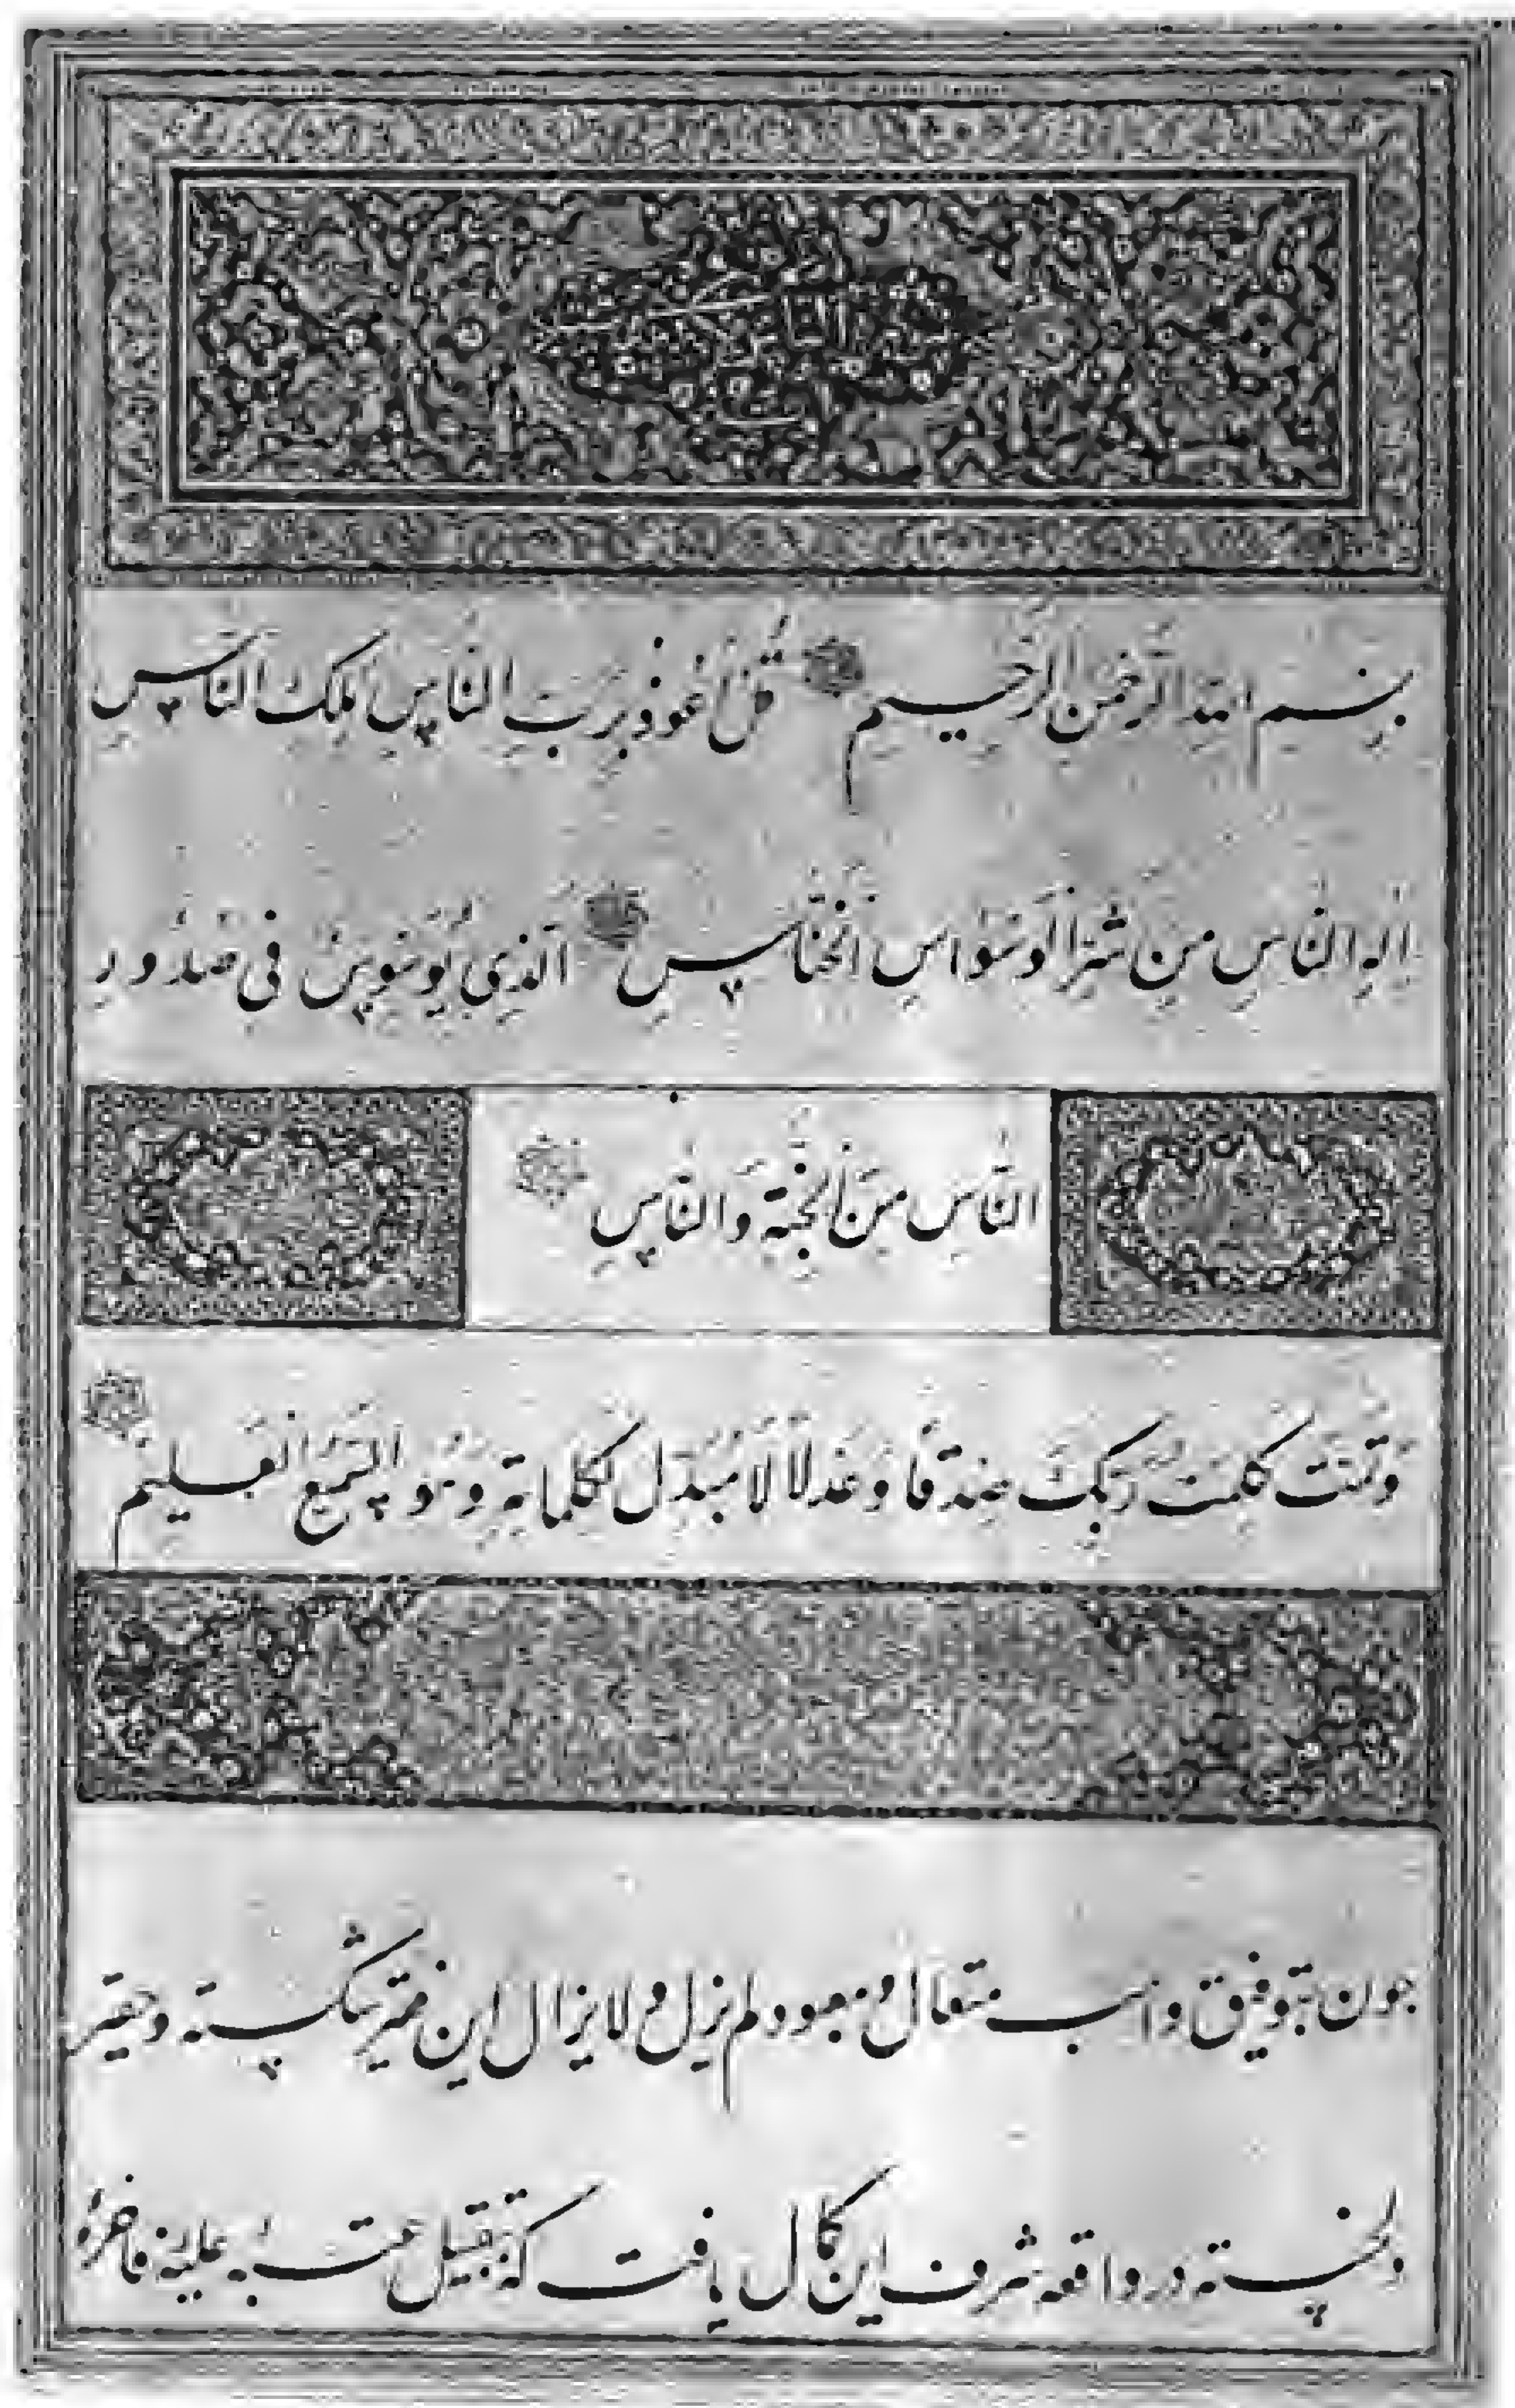 بِسْمِ اللهِ الرَّحْمٰنِ الرَّحِيمِ قُلْ أَعُوذُ بِرَبِّ النَّاسِ مَلِكِ النَّاسِ
إِلٰهِ النَّاسِ مِن شَرِّ الْوَسْوَاسِ الْخَنَّاسِ الَّذِي يُوَسْوِسُ فِي صُدُورِ
النَّاسِ مِنَ الْجِنَّةِ وَالنَّاسِ
وَتَمَّتْ كَلِمَتُ رَبِّكَ صِدْقًا وَعَدْلًا لَا مُبَدِّلَ لِكَلِمَاتِهِ وَهُوَ السَّمِيعُ الْعَلِيمُ
جون بتوفیق واهب متعال و معبود لم یزل و لا یزال این فقیر شکسته و حقیر
دلخسته در واقعه شرف این کمال یافت که بتقبیل عتبه علیه فاخرهٔ